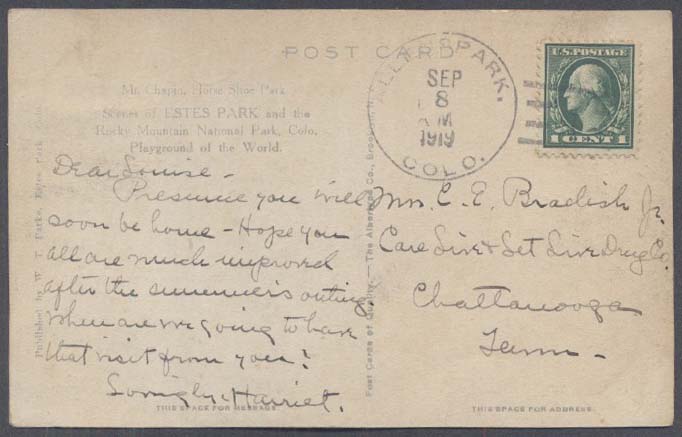 POST CARD
ALLENSPARK.
SEP
8
M
1919
COLO.
U.S. POSTAGE
1 CENT 1
Mt. Chapin, Horse Shoe Park
Scenes of ESTES PARK and the
Rocky Mountain National Park, Colo.
Playground of the World.
Dear Louise -
Presume you will
soon be home - Hope you
all are much improved
after the summer's outing.
When are we going to have
that visit from you?
Lovingly, Harriet.
Mrs. C. E. Bradish Jr.
Care Live & Let Live Drug Co.
Chattanooga
Tenn -
Published by W. T. Parke, Estes Park, Colo.
Post Cards of Quality. - The Albertype Co., Brooklyn, N.
THIS SPACE FOR MESSAGE.
THIS SPACE FOR ADDRESS.